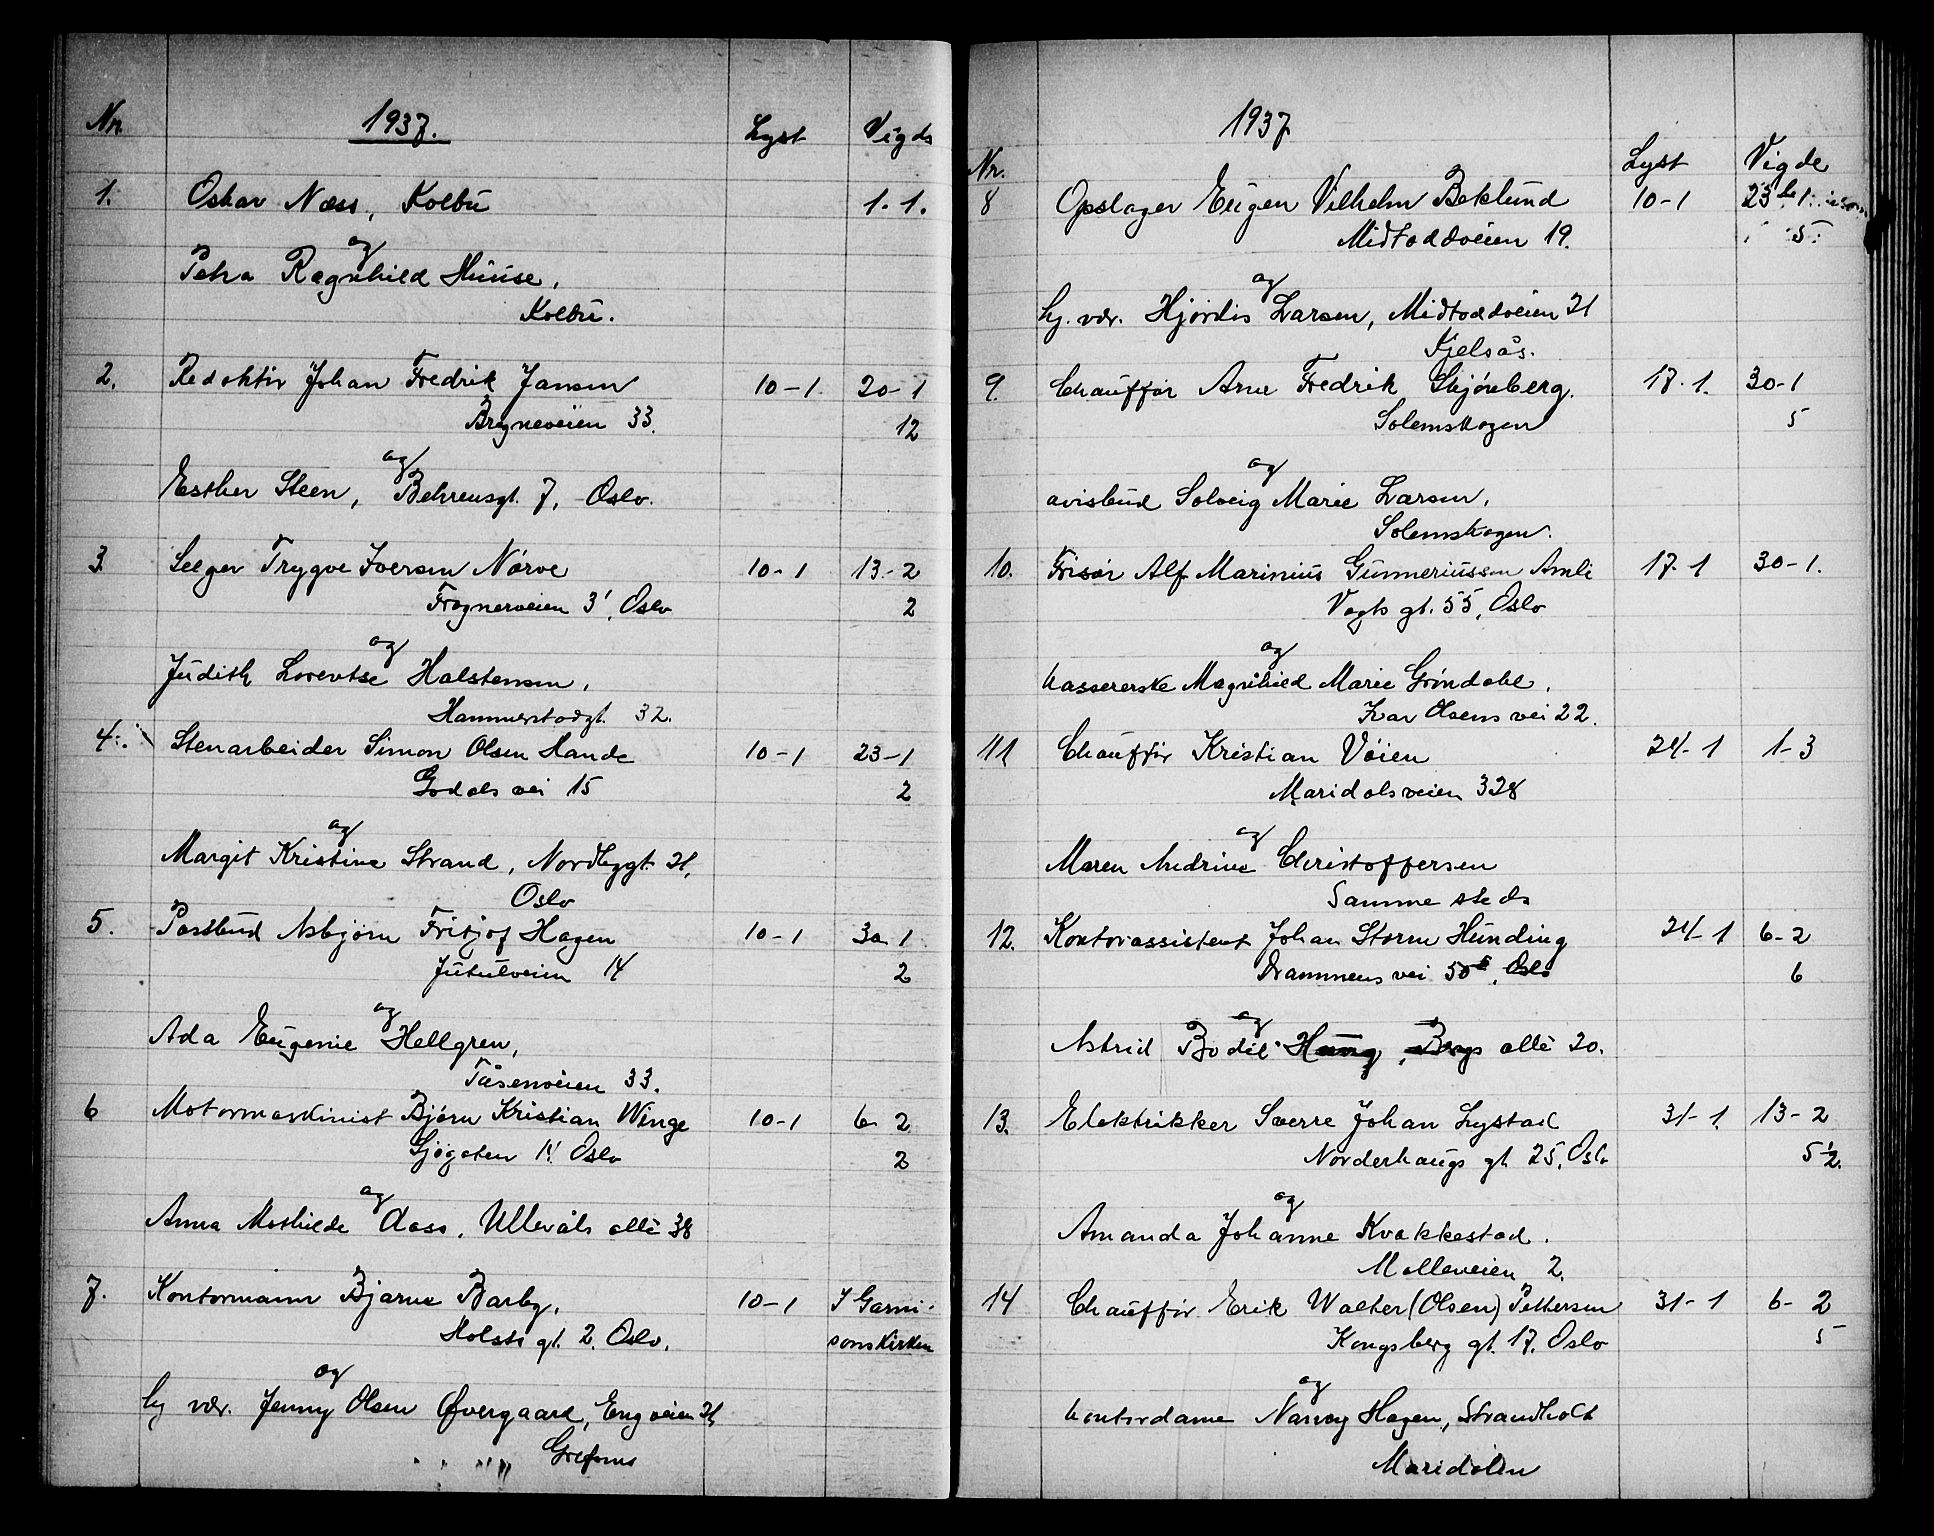 Nr. 1937. Lyst Vigde
1. Oskar Næss, Kolbu 1.1.
og
Petra Ragnhild Huuse,
Kolbu.
2. Redaktør Johan Fredrik Jansen 10-1 20-1
Bregneveien 33. 12
og
Esther Steen, Behrensgt. 7, Oslo.
3. Selger Trygve Iversen Nørve 10-1 13-2
Frognerveien 3', Oslo 2
og
Judith Lorentse Halstensen,
Hammerstadgt. 32.
4. Stenarbeider Simon Olsen Hande 10-1 23-1
Godals vei 15 2
og
Margit Kristine Strand, Nordbygt. 21,
Oslo
5. Postbud Asbjørn Fritjof Hagen 10-1 30-1
Jutulveien 14 2
og
Ada Eugenie Hellgren,
Tåsenveien 33.
6 Motormaskinist Bjørn Kristian Winge 10-1 6-2
Sjøgaten Oslo 2
og
Anna Mathilde Aass, Ullevåls allé 38
7. Kontormann Bjarne Barby, 10-1 I Garni-
Holsts gt. 2, Oslo. sonskirken
og
hj vær. Jenny Olsen Øvergaard, Engveien 21,
Grefsens
1937
Nr. Lyst Vigde
8 Opslager Eugen Vilhelm Beklund 10-1 23
Midtoddveien 19. 5
og
hj. vær. Hjørdis Larsen, Midtoddveien 21
Kjelsås.
9. Chauffør Arne Fredrik Skjønberg. 17.1. 30-1
Solemskogen 5
og
avisbud Solveig Marie Larsen,
Solemskogen.
10. Frisør Alf Marinius Gunneriussen Amli 17-1 30-1.
Vogts gt. 55, Oslo
og
kassererske Magnhild Marie Grøndahl,
Ivar Olsens vei 22.
11 Chauffør Kristian Vøien 24-1 1-3
Maridalsveien 328
og
Maren Andrine Christoffersen
Samme steds
12. Kontorassistent Johan Storm Hunding 24-1 6-2
Drammens vei 50 , Oslo 6
og
Astrid Bodil Haug, Bergs allé 20.
13. Elektrikker Sverre Johan Lystad 31-1. 13-2
Norderhaugs gt 25, Oslo 5½.
og
Amanda Johanne Kvakkestad.
Molleveien 2.
14 Chauffør Erik Walter (Olsen) Pettersen 31-1 6-2
Kongsberg gt. 17, Oslo 5
og
kontordame Narvey Hagen, Strandholt
Maridalen